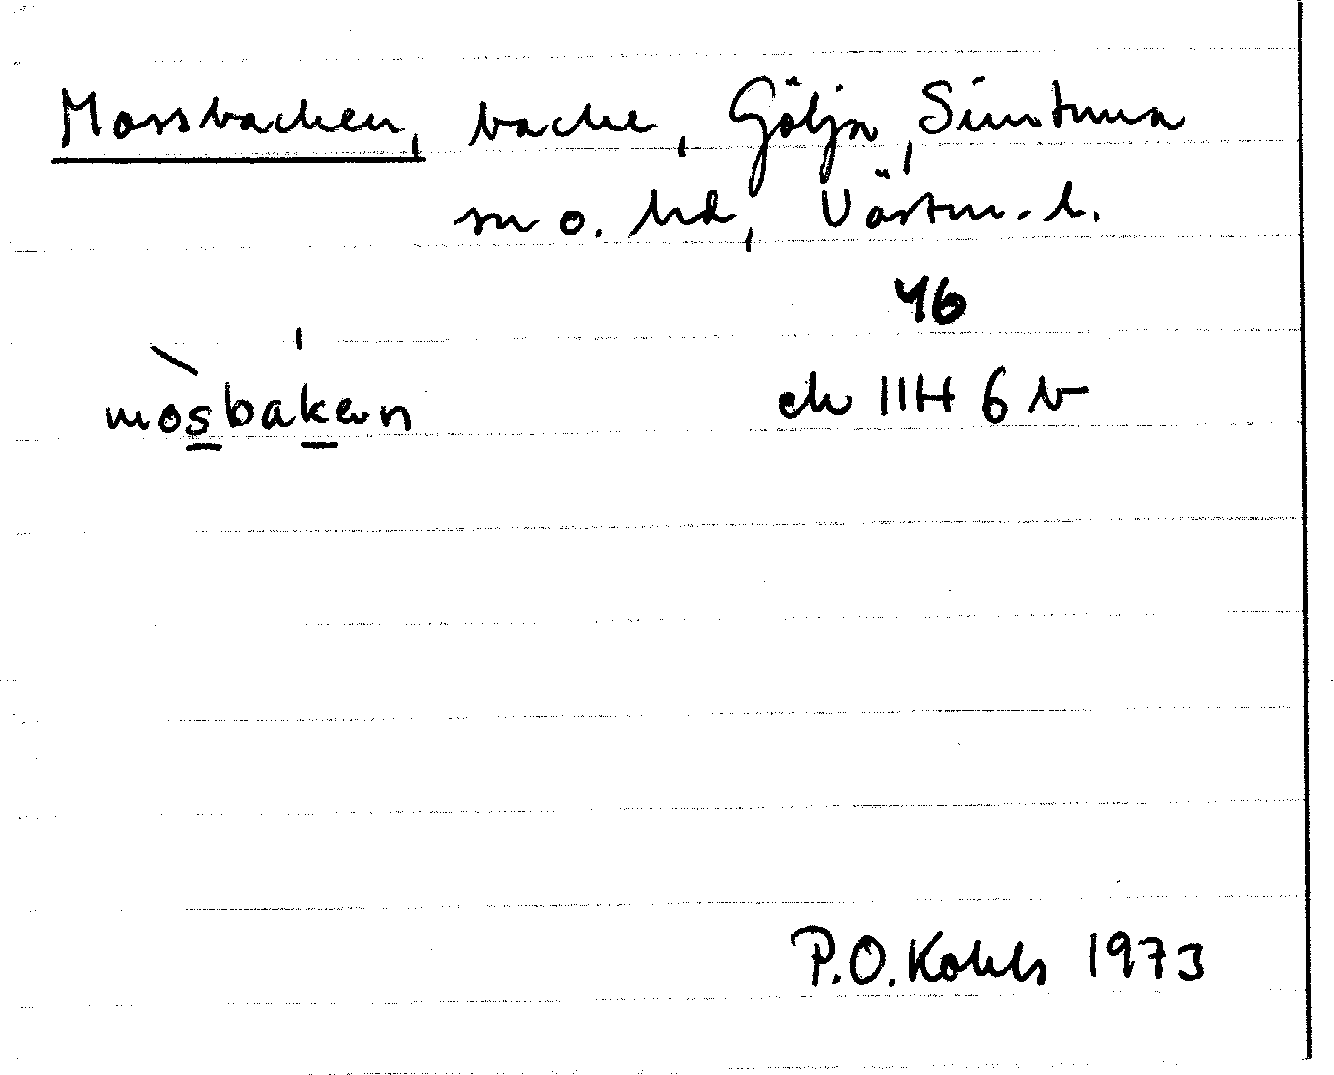 Mossbacken, backe, Gölja, Simtuna
sn o. hd, Västm. l.
46
mosbakən
ek 11H 6 b
P.O. Kohls 1973